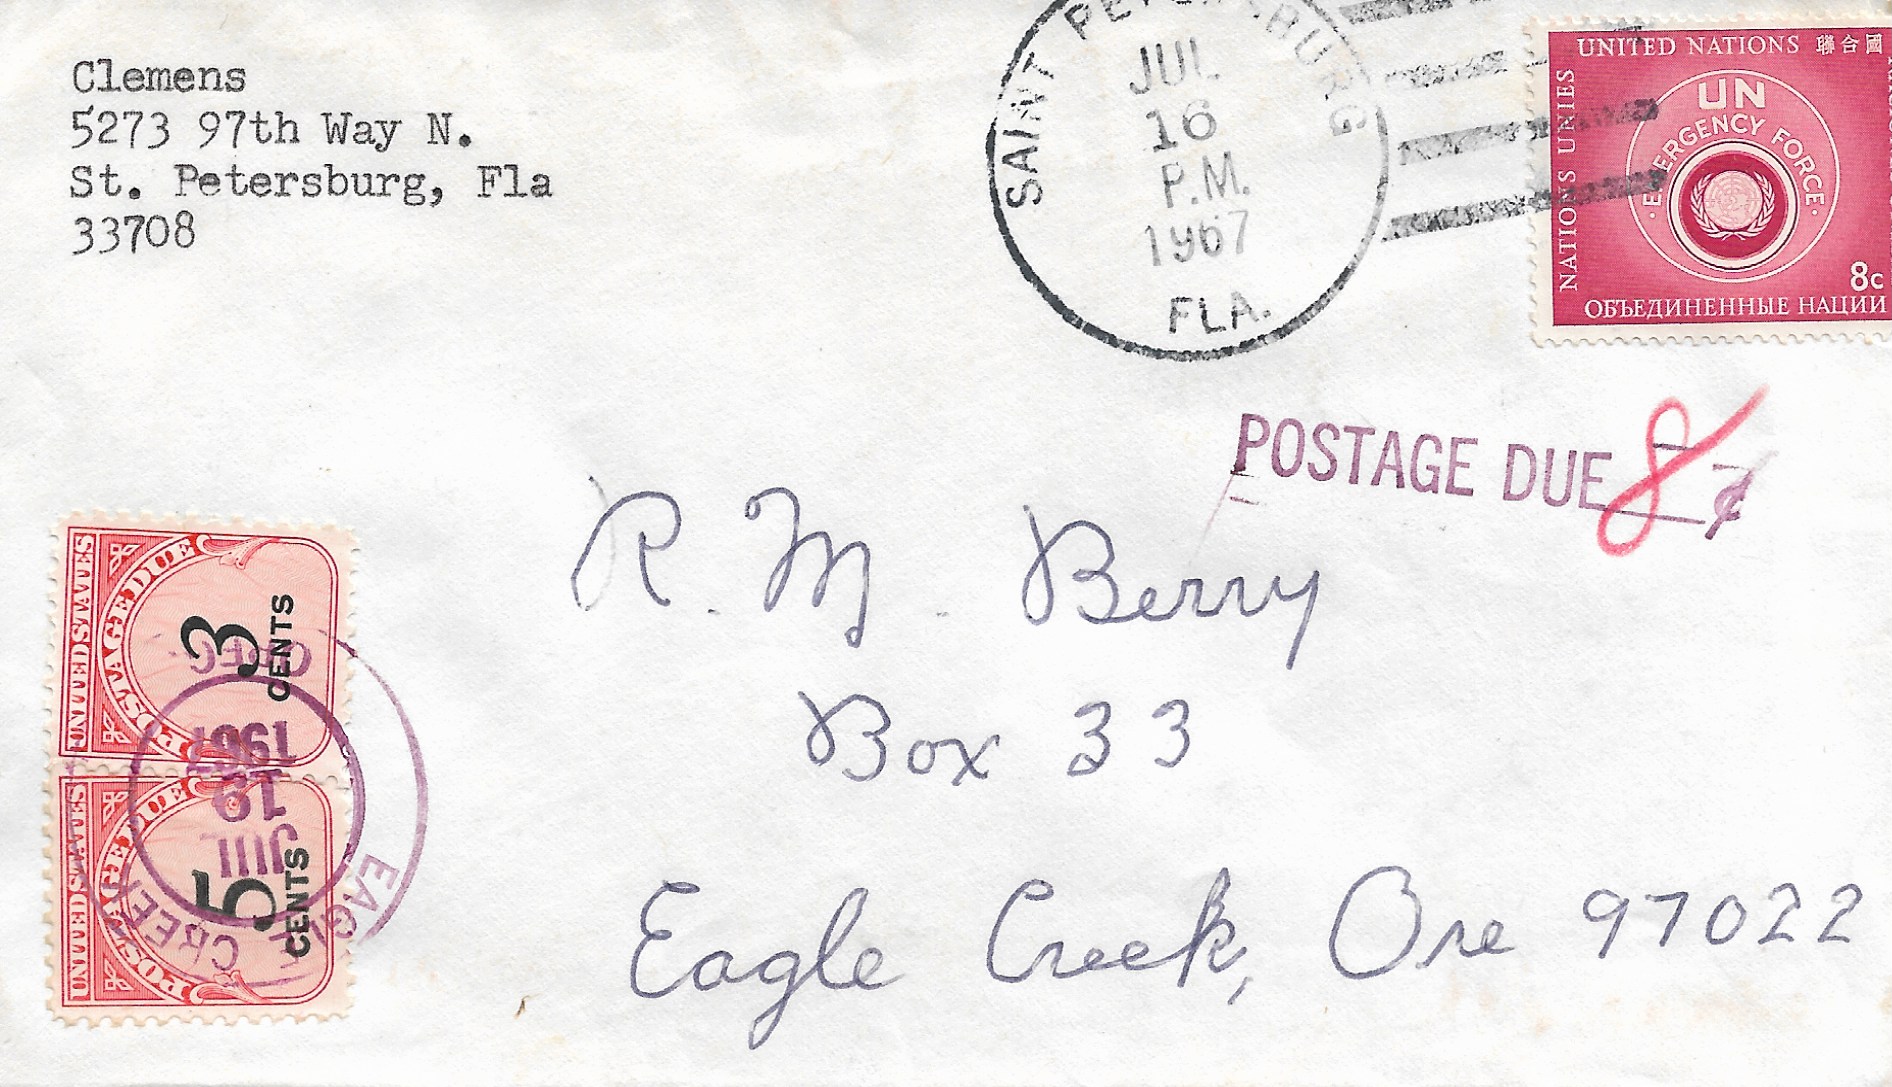 Clemens
5273 97th Way N.
St. Petersburg, Fla
33708
SAINT PETERSBURG
JUL
16
P.M.
1967
FLA.
UNITED NATIONS 聯合國
NATIONS UNIES
UN
EMERGENCY FORCE
8c
ОБЪЕДИНЕННЫЕ НАЦИИ
POSTAGE DUE 8 ¢
R. M. Berry
Box 33
Eagle Creek, Ore 97022
UNITED STATES
POSTAGE DUE
3
CENTS
UNITED STATES
POSTAGE DUE
5
CENTS
EAGLE CREEK
JUL
19
1967
OREG